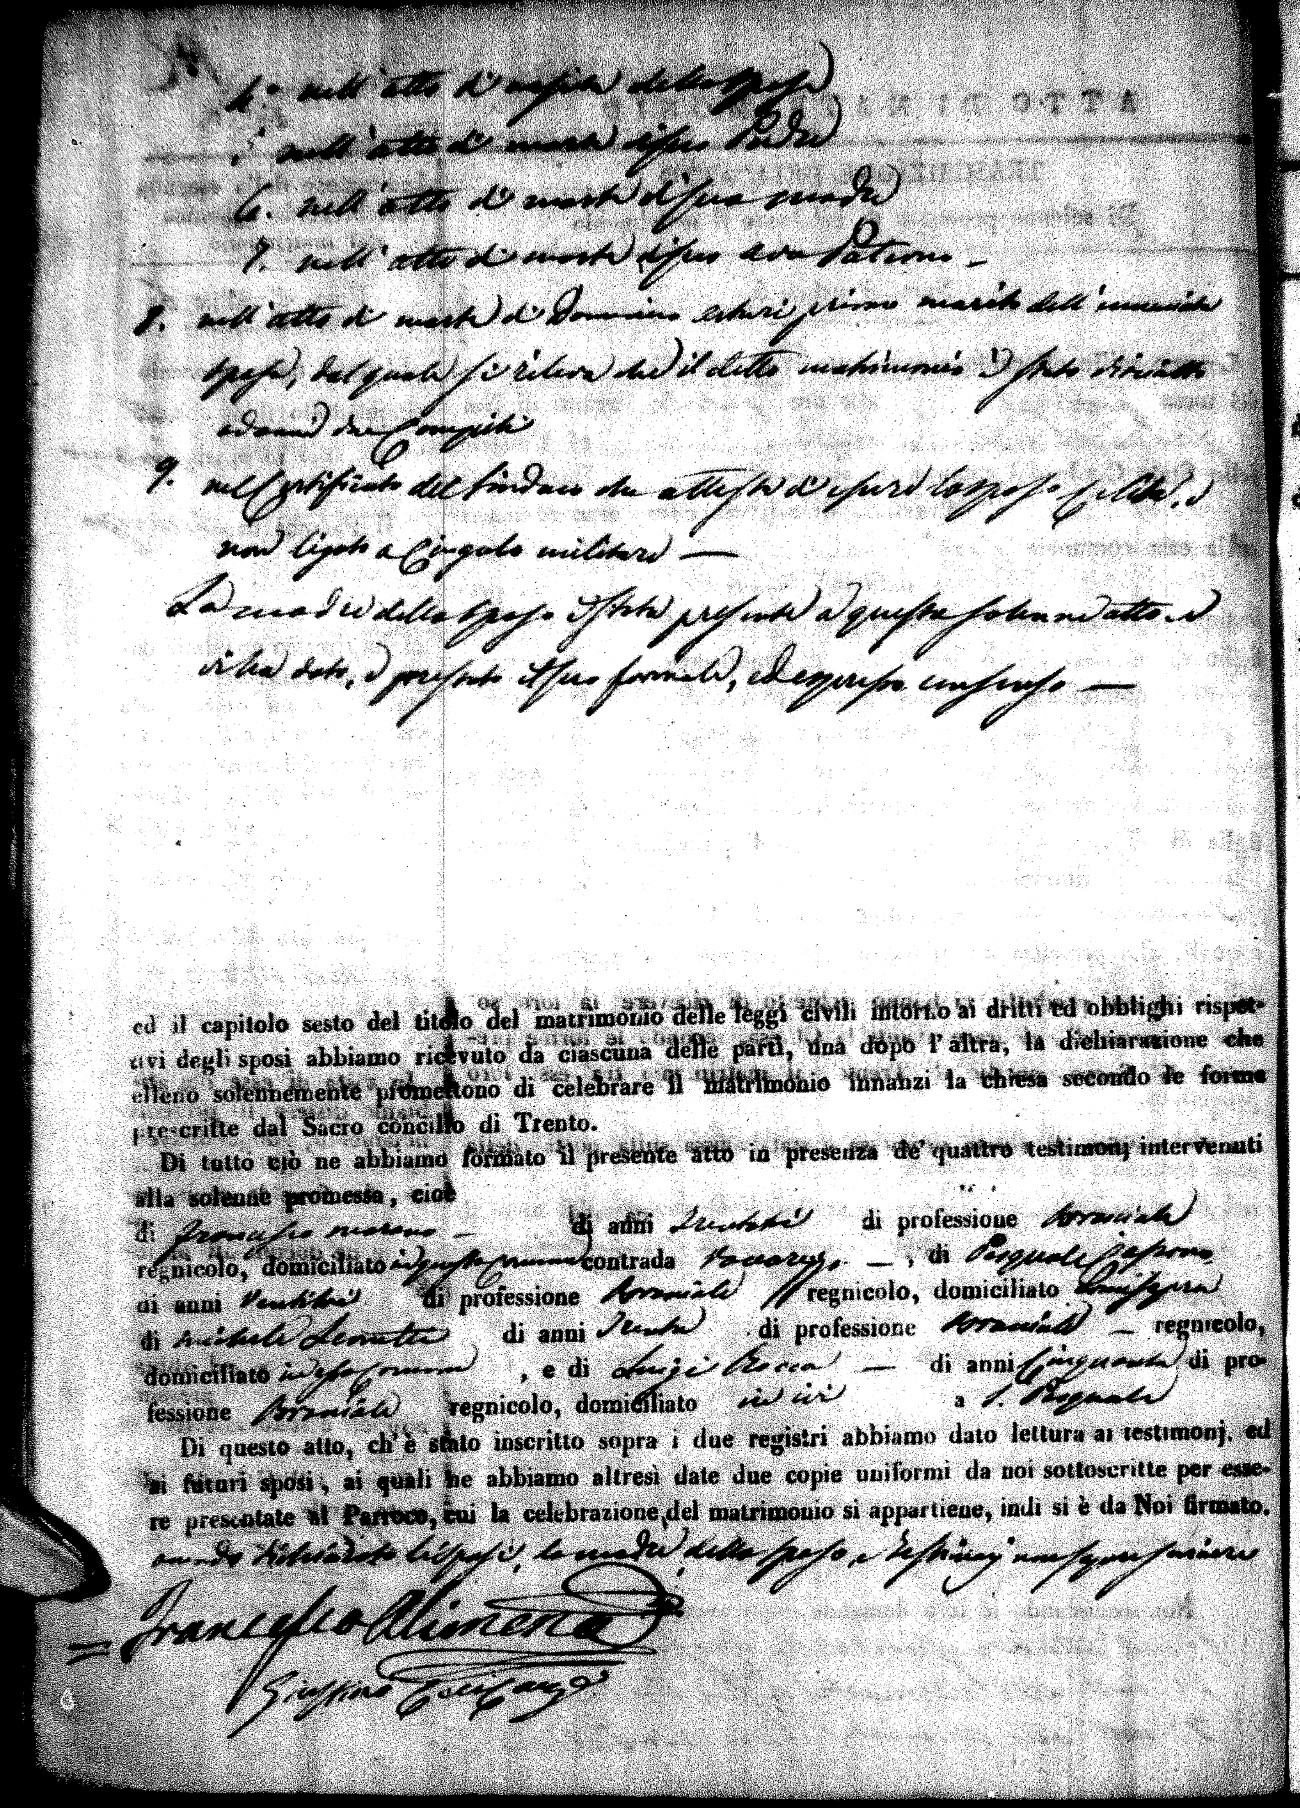 4.° nell'atto di nascita dello sposo
5. nell'atto di morte di suo Padre
6. nell'atto di morte di sua madre
7. nell'atto di morte di suo avo Paterno –
8. nell'atto di morte di Domenico primo marito dell'enunciata
sposa, dal quale si rileva che il detto matrimonio è stato disciolto
9. nel Certificato del Sindaco che attesta di essere lo sposo celibe, e
non ligato a Cingolo militare —
La madre dello sposo è stata presente a questo solenne atto, e
vi ha dato, e prestato il suo formale, ed espresso consenso —
ed il capitolo sesto del titolo del matrimonio delle leggi civili intorno ai dritti ed obblighi rispet-
tivi degli sposi abbiamo ricevuto da ciascuna delle parti, una dopo l'altra, la dichiarazione che
elleno solennemente promettono di celebrare il matrimonio innanzi la chiesa secondo le forme
prescritte dal Sacro concilio di Trento.
Di tutto ciò ne abbiamo formato il presente atto in presenza de' quattro testimonj intervenuti
alla solenne promessa, cioè
di Francesco Moreno – di anni di professione Bracciale
regnicolo, domiciliato in questo Comune contrada —, di Pasquale
di anni Ventitre di professione Bracciale regnicolo, domiciliato
di Michele di anni Trenta di professione Bracciale — regnicolo,
domiciliato in esso Comune, e di Luigi Rocca — di anni Cinquanta di pro-
fessione Bracciale regnicolo, domiciliato in ivi a S. Pasquale
Di questo atto, ch'è stato inscritto sopra i due registri abbiamo dato lettura ai testimonj, ed
ai futuri sposi, ai quali ne abbiamo altresì date due copie uniformi da noi sottoscritte per esse-
re presentate al Parroco, cui la celebrazione del matrimonio si appartiene, indi si è da Noi firmato,
avendo dichiarato li sposi, la madre dello sposo, e testimonj non sapere scrivere
Francesco Alimena
Giustino